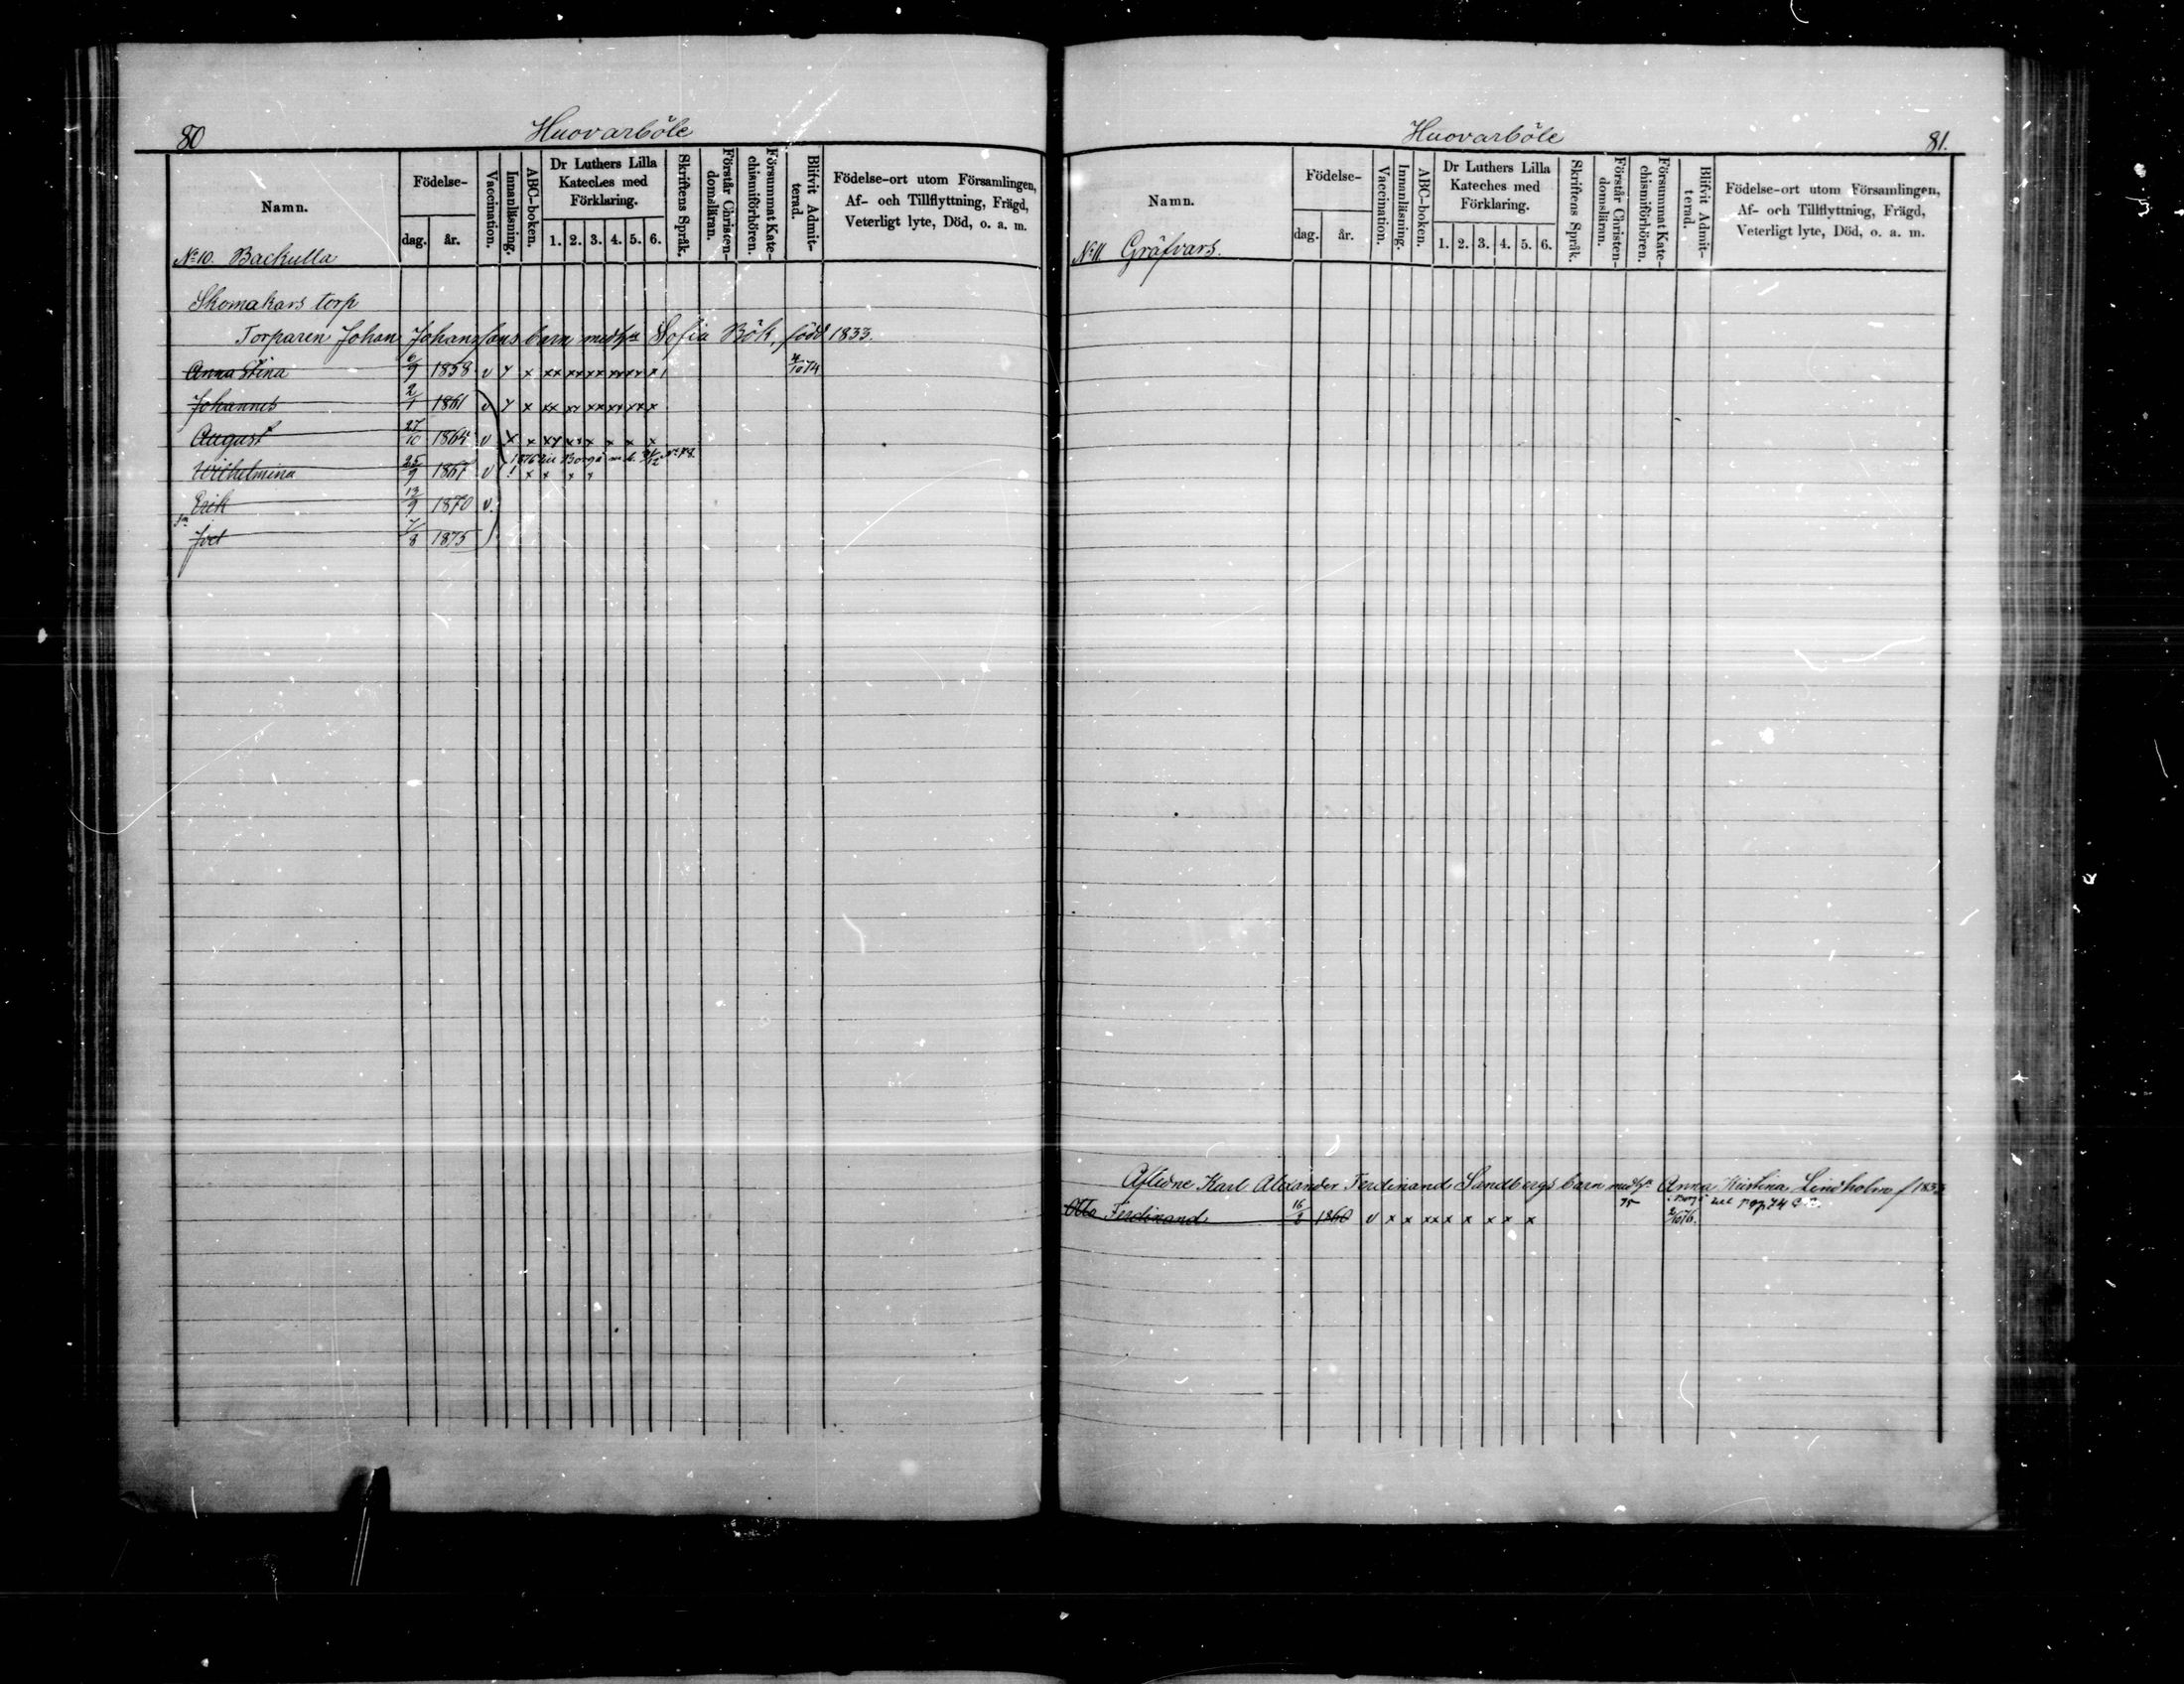 80 Huovarböle
Namn. Födelse- dag. år. Vaccination. Innanläsning. ABC-boken. Dr Luthers Lilla Kateches med Förklaring. 1. 2. 3. 4. 5. 6. Skriftens Språk. Förstår Christendomsläran. Försummat Katechismiförhören. Blifvit Admitterad. Födelse-ort utom Församlingen, Af- och Tillflyttning, Frägd, Veterligt lyte, Död, o. a. m.
No 10. Backulla
Skomakars torp
Torparen Johan Johanssons barn med h:u Sofia Bök, född 1833.
Anna Stina 6/9 1858 v x x xx xx xx xx xx x 4/10 74
Johannes 2/1 1861 v x x xx xx xx xx xx x
August 27/10 1864 v x x xx xx x x x x
1876 till Borgå
Wilhelmina 25/9 1867 v ! x x x x
Erik 13/9 1870 v.
Joel 7/8 1875
Huovarböle 81.
Namn. Födelse- dag. år. Vaccination. Innanläsning. ABC-boken. Dr Luthers Lilla Kateches med Förklaring. 1. 2. 3. 4. 5. 6. Skriftens Språk. Förstår Christendomsläran. Försummat Katechismiförhören. Blifvit Admitterad. Födelse-ort utom Församlingen, Af- och Tillflyttning, Frägd, Veterligt lyte, Död, o. a. m.
No 11 Gräfvars.
Aflidne Karl Alexander Ferdinand Sandbergs barn med h:u Anna Kristina Lindholm f 1833
i Borgå
Otto Ferdinand 16/8 1860 v x x xx x x x x x 75 2/10 76.